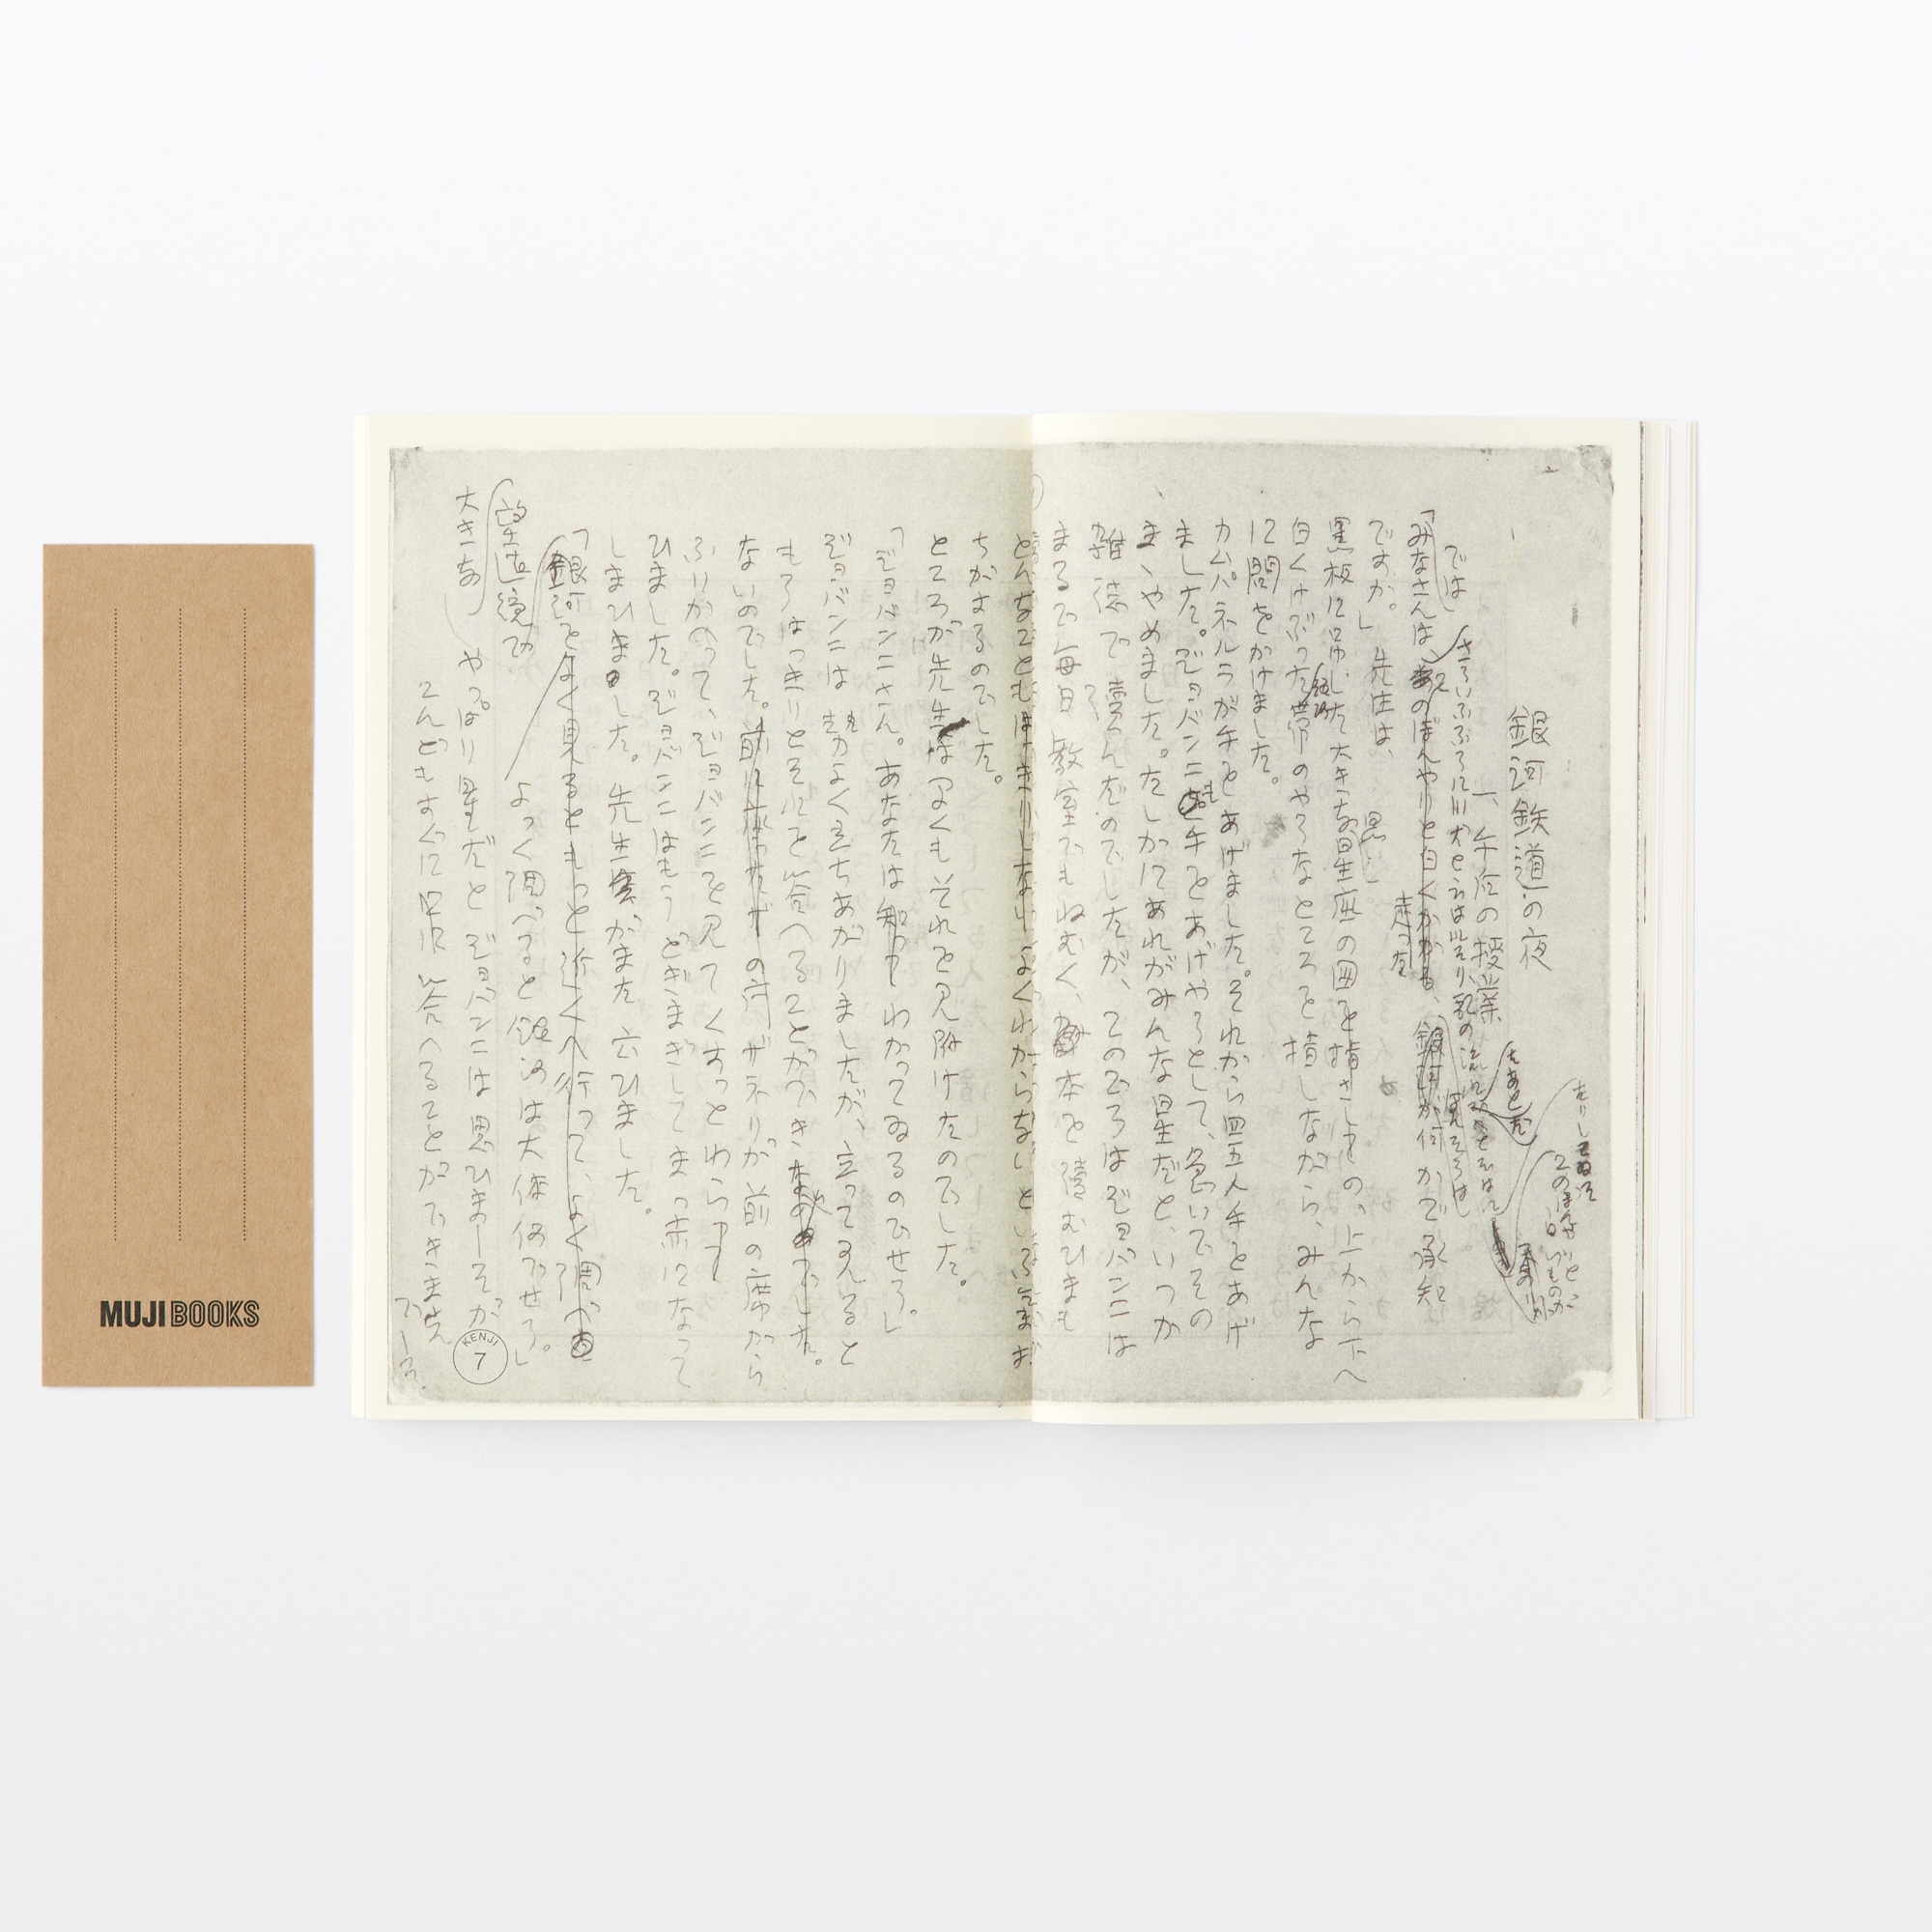 銀河鉄道の夜
一、午后の授業
では
「みなさんは、
さういふふうに川だと云はれたり、乳の流れた
あとだと
このぼんやりと
白いものが
銀河が何かご承知
ですか。」先生は、
黒い
黒板に吊した大きな星座の図を指さしました。上から下へ
白くけぶった銀河帯のやうなところを指しながら、みんな
に問をかけました。
カムパネルラが手をあげました。それから四五人手をあげ
ました。ジョバンニも手をあげやうとして、急いでその
まゝやめました。たしかにあれがみんな星だと、いつか
雑誌で読んだのでしたが、このごろはジョバンニは
まるで毎日教室でもねむく、本を読むひまも
どんなこともよくわからないといふ気も
ちがするのでした。
ところが先生は早くもそれを見附けたのでした。
「ジョバンニさん。あなたはわかってゐるのでせう。」
ジョバンニは勢よく立ちあがりましたが、立って見ると
もうはっきりとそれを答へることができ
ないのでした。ザネリが前の席から
ふりかへって、ジョバンニを見てくすっとわら
ひました。ジョバンニはもうどぎまぎしてまっ赤になって
しまひました。先生がまた云ひました。
「銀河をよく見るともっと近くへ行って、よく調
大きな
望遠鏡で
よっく調べると銀河は大体何でせう。」
やっぱり星だとジョバンニは思ひましたが
こんどもすぐに答へることができませ
KENJI
7
MUJI BOOKS